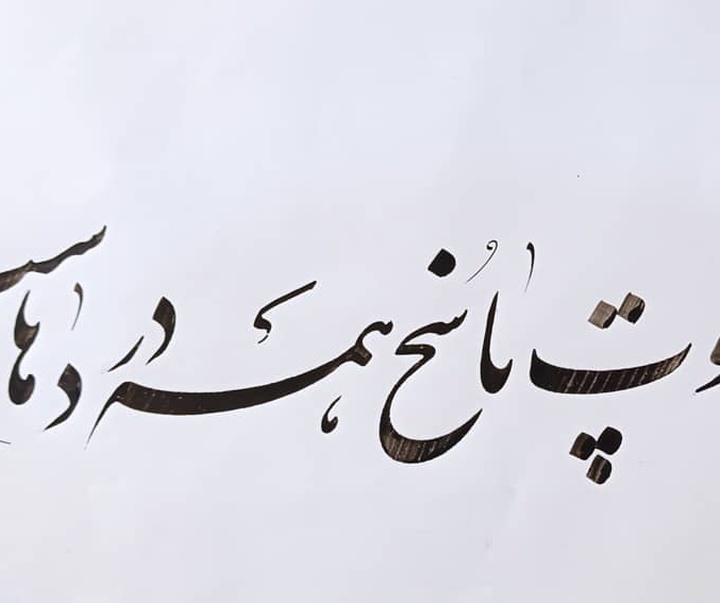 وت پاسخ همه دردهاس